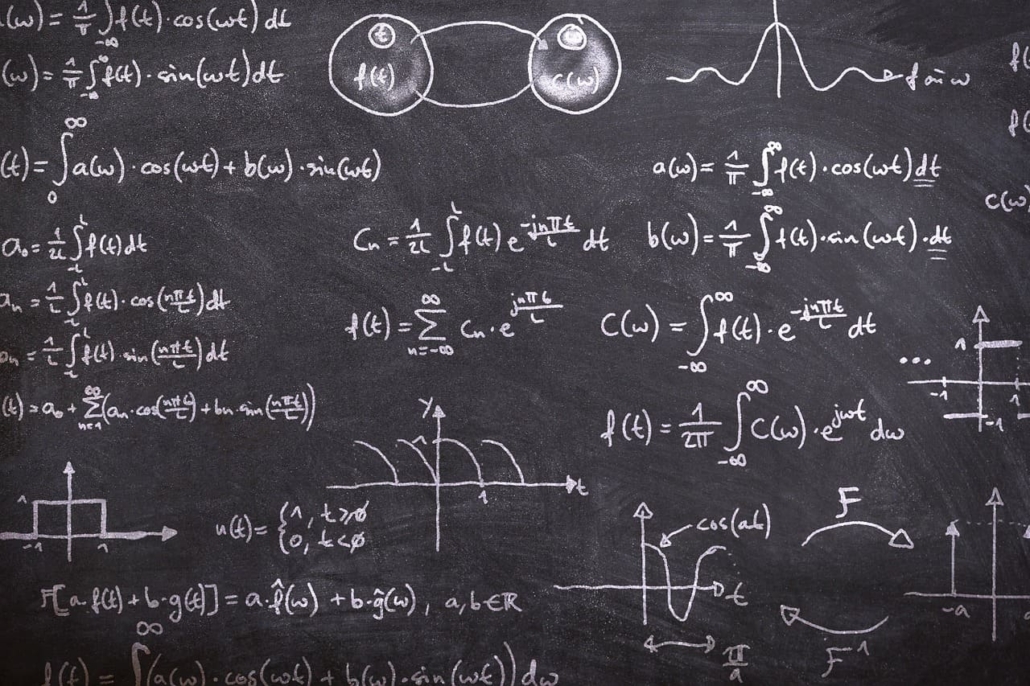 (ω) = 1/π ∫_{-∞} f(t)·cos(ωt) dt
(ω) = 1/π ∫_{-∞}^{∞} f(t)·sin(ωt) dt
f(t)
c(ω)
f or ω
(t) = ∫_0^∞ a(ω)·cos(ωt) + b(ω)·sin(ωt)
a(ω) = 1/π ∫_{-∞}^{∞} f(t)·cos(ωt) dt
c(ω)
a₀ = 1/2L ∫_{-L}^{L} f(t) dt
Cn = 1/2L ∫_{-L}^{L} f(t) e^{-jnπt/L} dt
b(ω) = 1/π ∫_{-∞}^{∞} f(t)·sin(ωt)·dt
an = 1/L ∫_{-L}^{L} f(t)·cos(nπt/L) dt
f(t) = ∑_{n=-∞}^{∞} Cn·e^{jnπt/L}
C(ω) = ∫_{-∞}^{∞} f(t)·e^{-jnπt/L} dt
bn = 1/L ∫_{-L}^{L} f(t)·sin(nπt/L) dt
...
1
-1
-1
(t) = a₀ + ∑_{n=1}^{∞} (an·cos(nπt/L) + bn·sin(nπt/L))
f(t) = 1/2π ∫_{-∞}^{∞} C(ω)·e^{jωt} dω
y
1
1
t
1
-1
1
u(t) = { 1, t≥0
0, t<0
cos(at)
t
π/a
F
F⁻¹
-a
F[a·f(t) + b·g(t)] = a·f̂(ω) + b·ĝ(ω), a,b∈ℝ
f(t) = ∫^∞ (a(ω)·cos(ωt) + b(ω)·sin(ωt)) dω